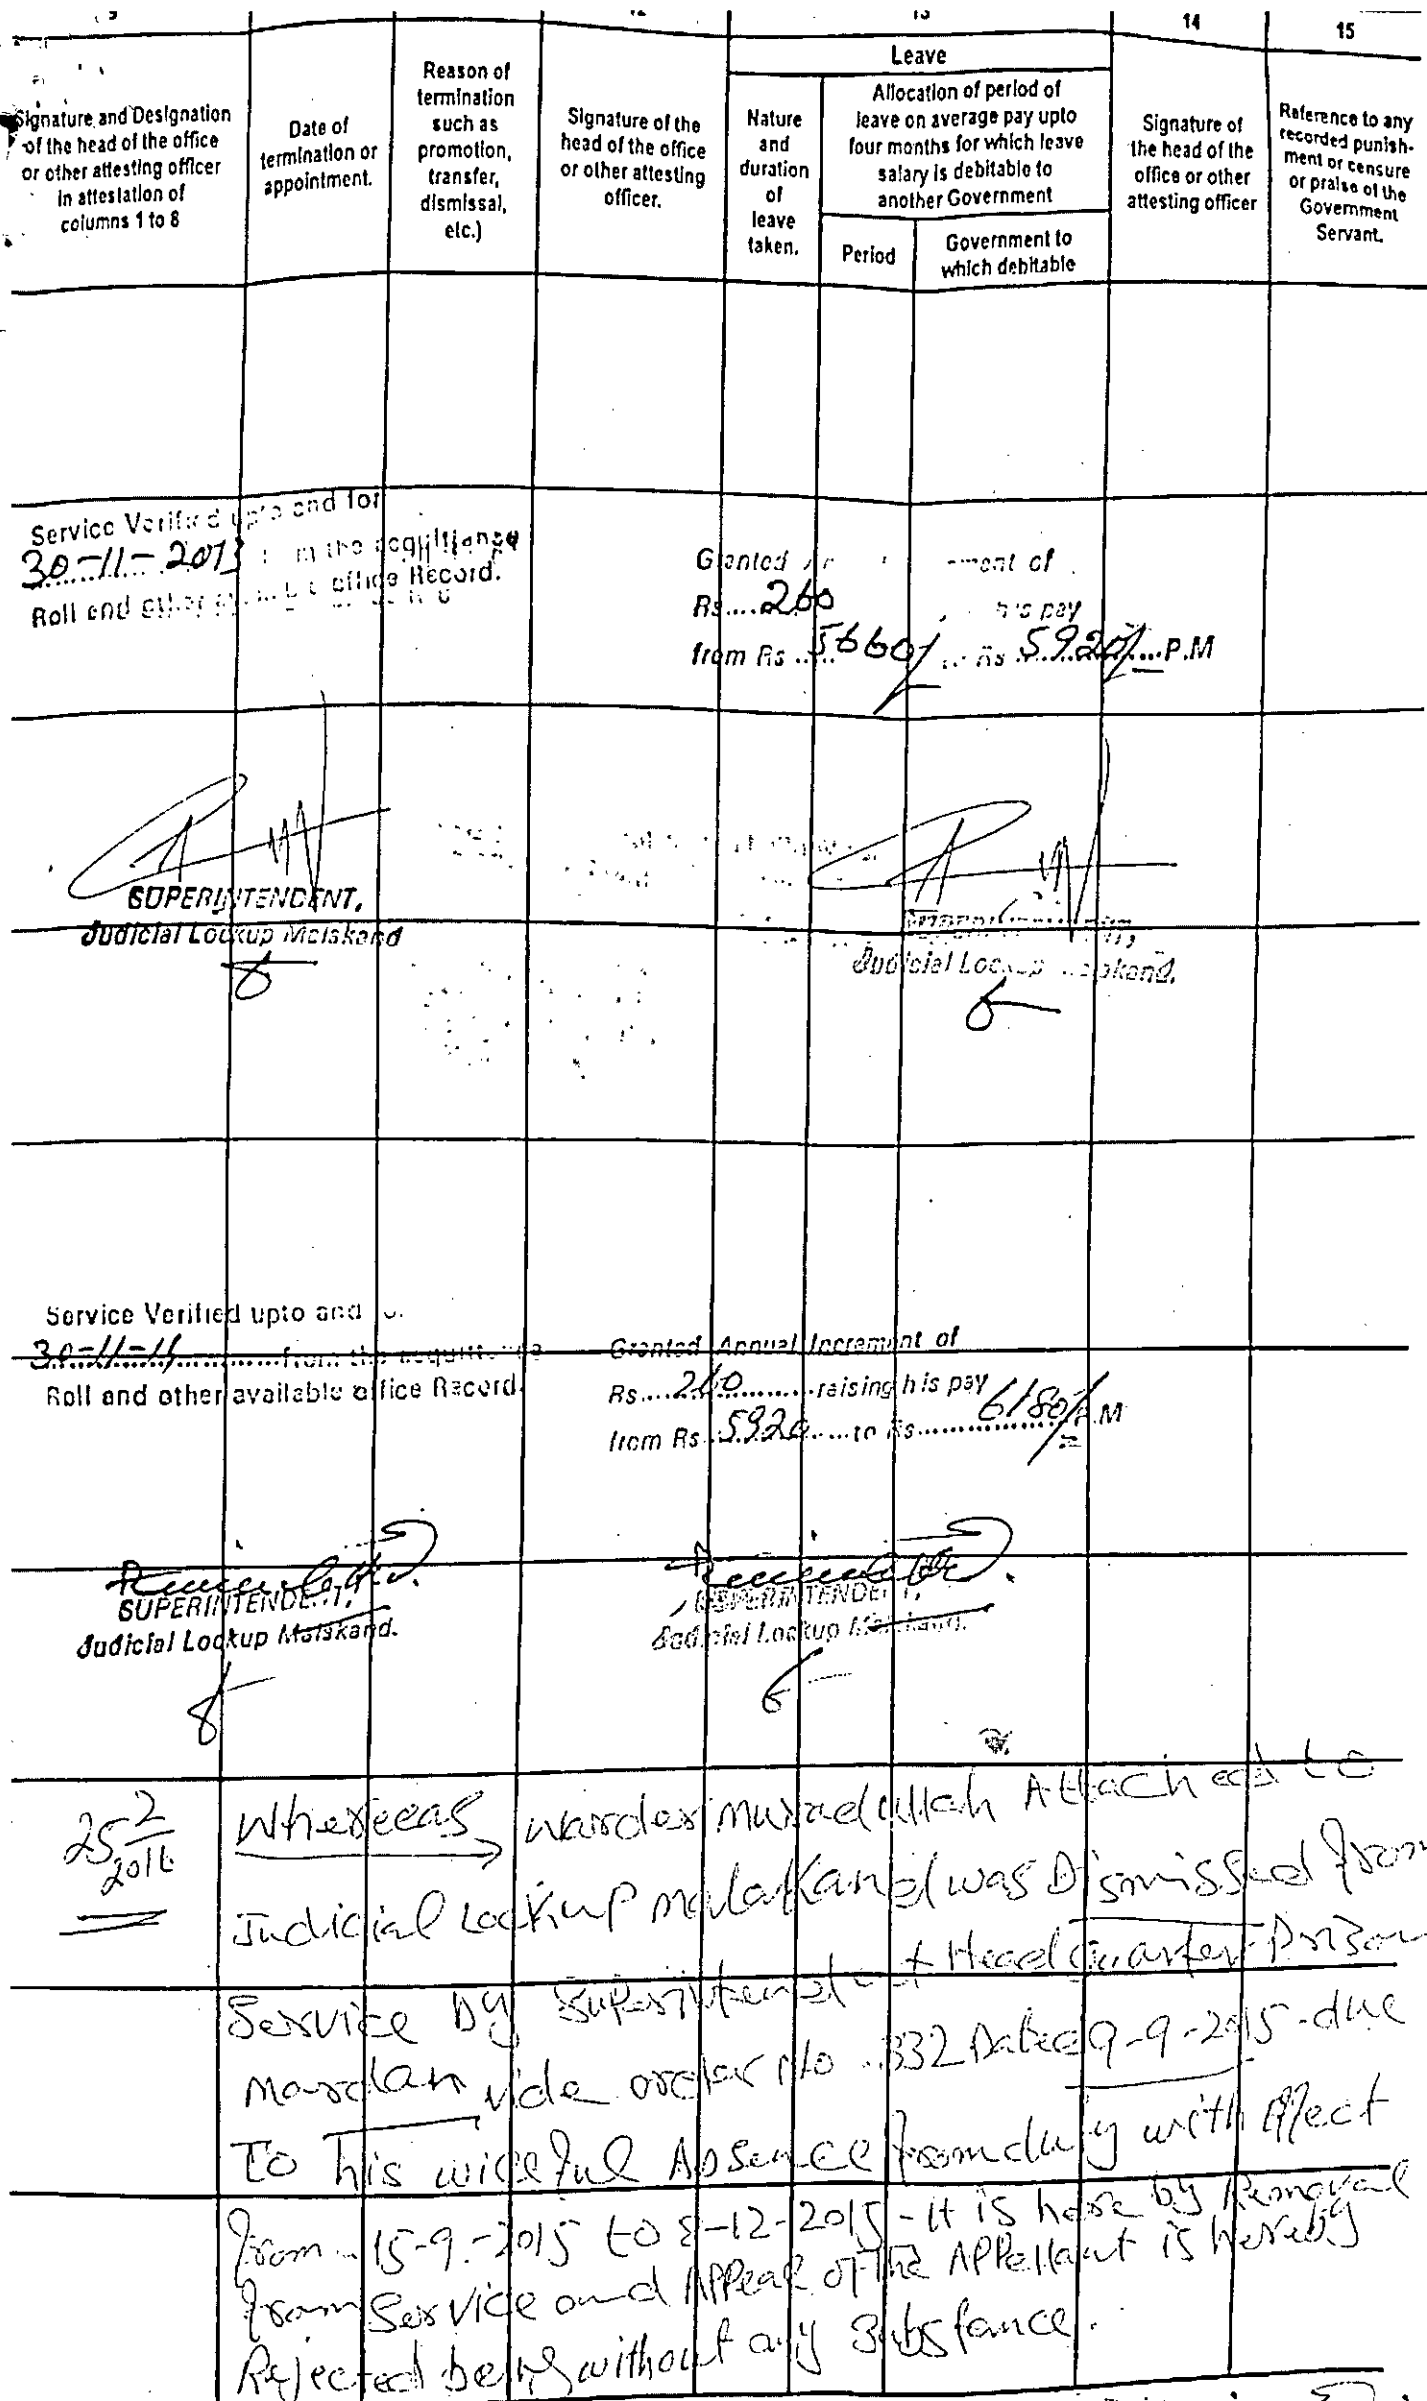 9 12 13 14 15
Leave
Signature and Designation
of the head of the office
or other attesting officer
in attestation of
columns 1 to 8
Date of
termination or
appointment.
Reason of
termination
such as
promotion,
transfer,
dismissal,
etc.)
Signature of the
head of the office
or other attesting
officer.
Nature
and
duration
of
leave
taken.
Allocation of period of
leave on average pay upto
four months for which leave
salary is debitable to
another Government
Period
Government to
which debitable
Signature of
the head of the
office or other
attesting officer
Reference to any
recorded punish-
ment or censure
or praise of the
Government
Servant.
Service Verified upto and for
30-11-2013 from the acquittance
Roll and other office Record.
Granted ment of
Rs.....260 his pay
from Rs ..... 5660/ to Rs 5920/- P.M
SUPERINTENDENT,
Judicial Lockup Malakand
8
Judicial Lockup Malakand.
Service Verified upto and
30-11-14 from the acquittance
Roll and other available office Record.
Granted Annual Increment of
Rs.....260..........raising his pay
from Rs. 5920.....to Rs............6180/- P.M
SUPERINTENDENT,
Judicial Lockup Malakand.
8
SUPERINTENDENT,
Judicial Lockup Malakand.
25 2/2016
Whereeas warder muradullah Attached to
Judicial Lockup malakand was Dismissed from
Service By Superintendent Head Quarter Prison
mardan vide order No 332 Dated 9-9-2015-due
To his willful Absence from duty with effect
from 15-9-2015 to 8-12-2015 - It is here by Removal
from Service and Appeal of The Appellant is hereby
Rejected being without any Substance.